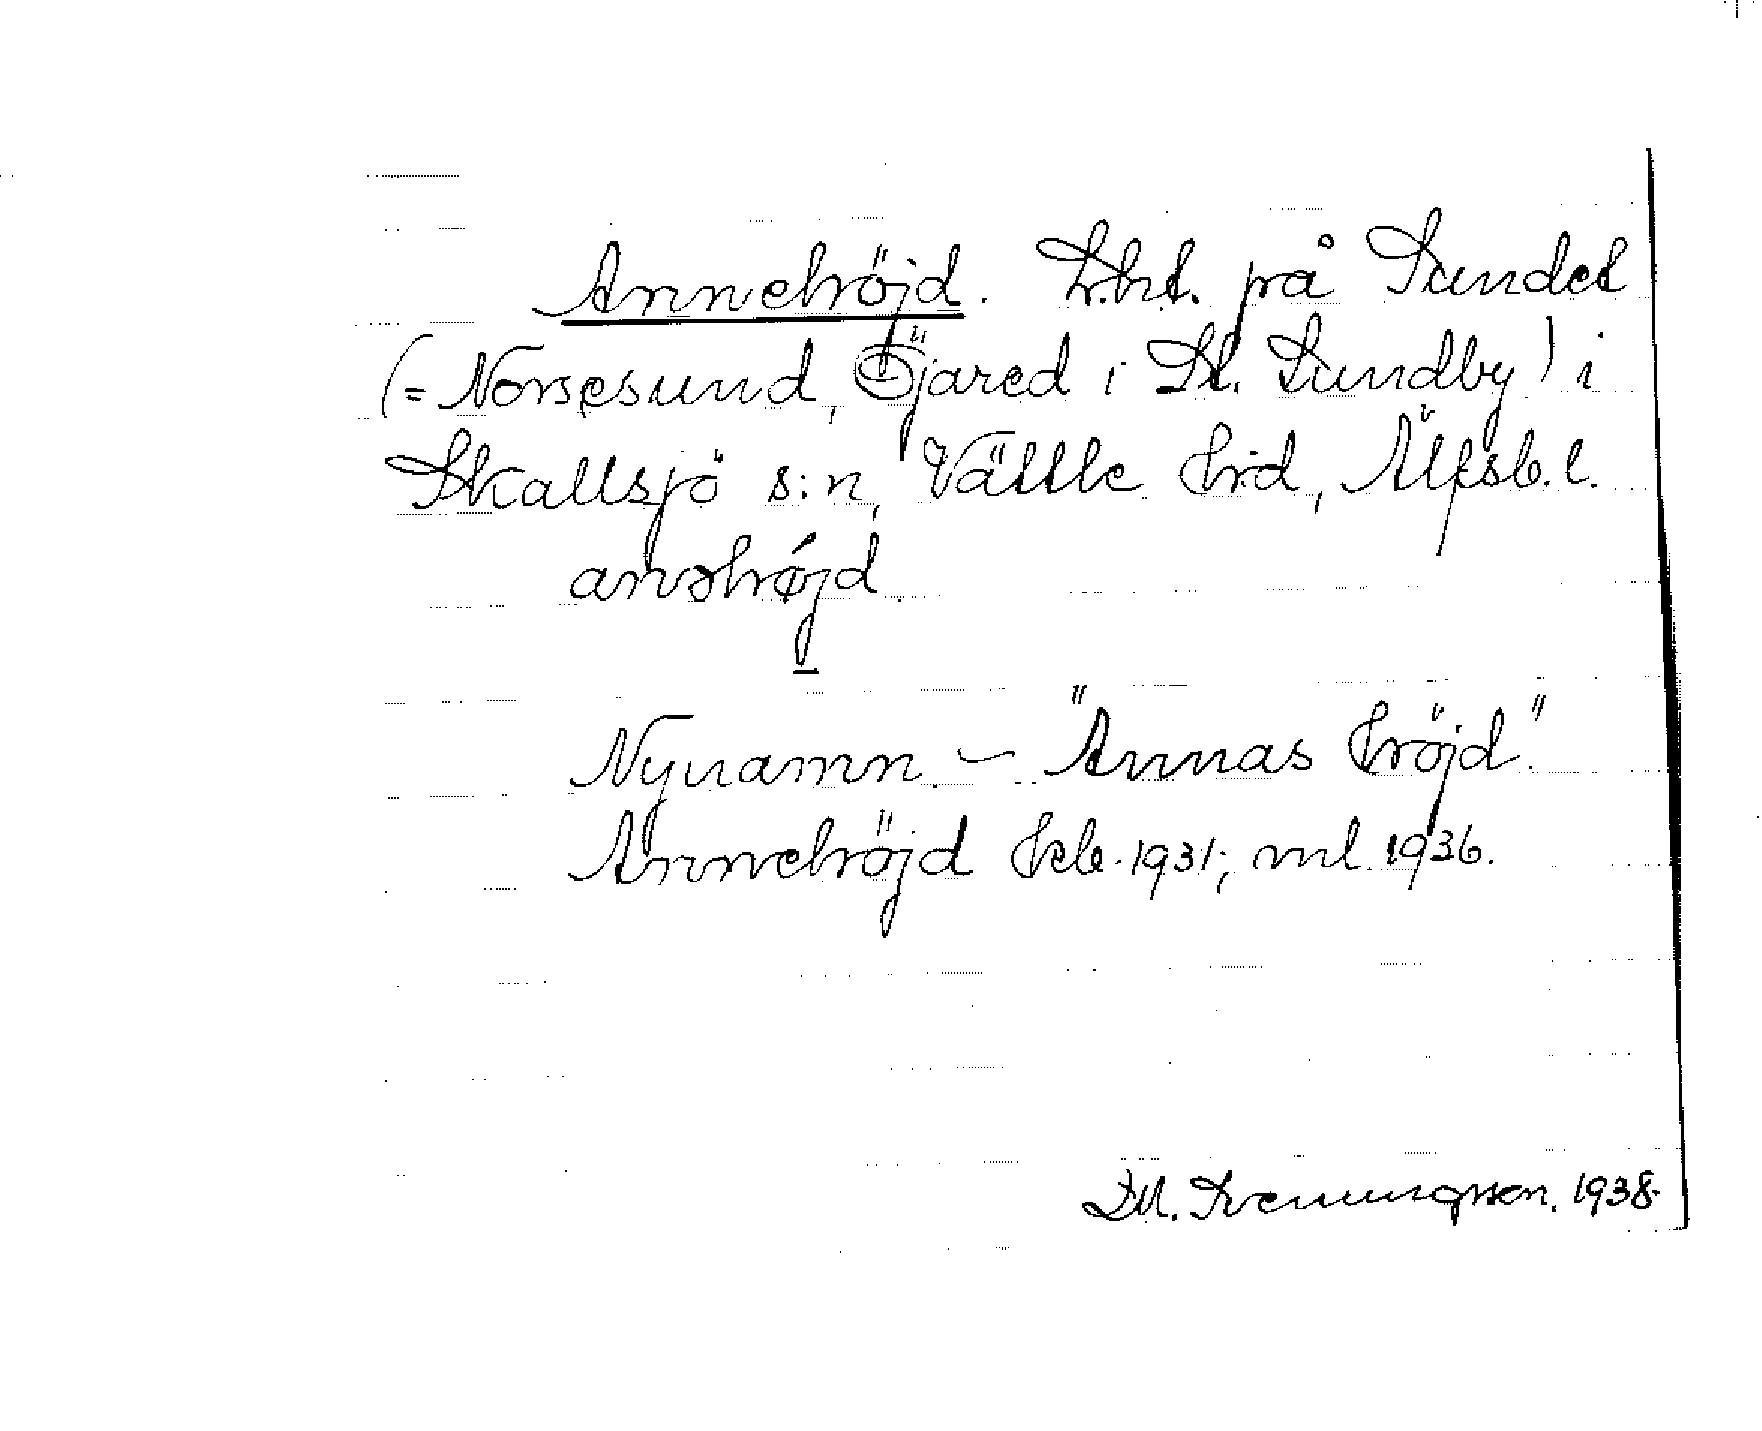 Annehöjd. Lht. på Sundet
(= Norsesund, Öjared i St. Lundby) i
Skallsjö s:n, Vättle hd, Älvsb. l.
Nynamn – "Annas höjd."
Annehöjd 1931; ml 1936.
1938